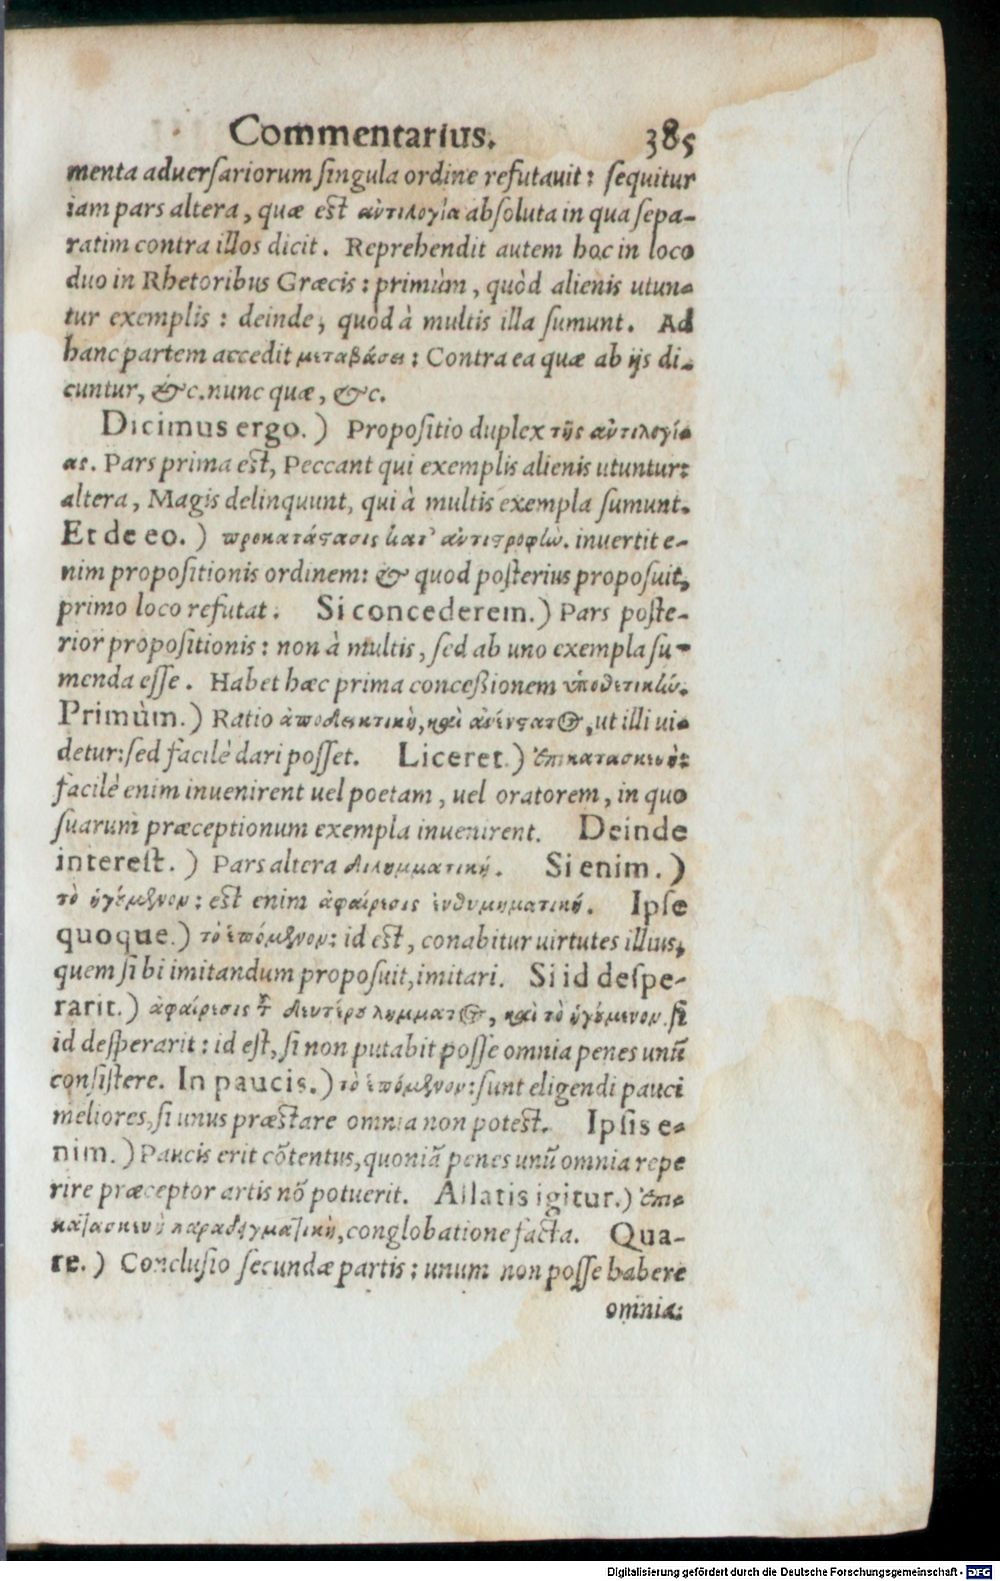 Commentarius. 385
menta adversariorum singula ordine refutavit: sequitur
iam pars altera, quæ est ἀντιλογία absoluta in qua sepa-
ratim contra illos dicit. Reprehendit autem hoc in loco
duo in Rhetoribus Græcis: primùm, quòd alienis utun-
tur exemplis: deinde, quòd à multis illa sumunt. Ad
hanc partem accedit μεταβάσει: Contra ea quæ ab ijs di-
cuntur, &c. nunc quæ, &c.
Dicimus ergo.) Propositio duplex τῆς ἀντιλογί-
ας. Pars prima est, Peccant qui exemplis alienis utuntur:
altera, Magis delinquunt, qui à multis exempla sumunt.
Et de eo.) προκατάστασις κατ' ἀντιστροφὼ. invertit e-
nim propositionis ordinem: & quod posterius proposuit,
primo loco refutat. Si concederem.) Pars poste-
rior propositionis: non à multis, sed ab uno exempla su-
menda esse. Habet hæc prima concessionem ὑποθετικὼ.
Primùm.) Ratio ἀποδεικτικὴ, καὶ ἀνένστατος, ut illi vi-
detur: sed facilè dari posset. Liceret.) ἐπικατασκευὴ:
facilè enim invenirent vel poetam, vel oratorem, in quo
suarum præceptionum exempla invenirent. Deinde
interest.) Pars altera διλημματική. Si enim.)
τὸ ἡγούμενον: est enim ἀφαίρεσις ἐνθυμηματική. Ipse
quoque.) τὸ ἑπόμενον: id est, conabitur virtutes illius,
quem sibi imitandum proposuit, imitari. Si id despe-
rarit.) ἀφαίρεσις τοῦ δευτέρου λήμματος, καὶ τὸ ἡγούμενον. si
id desperarit: id est, si non putabit posse omnia penes unũ
consistere. In paucis.) τὸ ἑπόμενον: sunt eligendi pauci
meliores, si unus præstare omnia non potest. Ipsis e-
nim.) Paucis erit cõtentus, quoniã penes unũ omnia repe
rire præceptor artis nõ potuerit. Allatis igitur.) ἐπι-
κατασκευὴ παραδειγματικὴ, conglobatione facta. Qua-
re.) Conclusio secundæ partis: unum non posse habere
omnia:
Digitalisierung gefördert durch die Deutsche Forschungsgemeinschaft - DFG